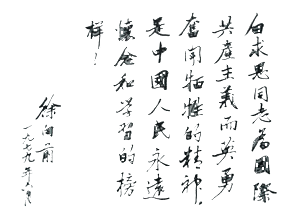 白求恩同志为國際
共產主義而英勇
奮鬪牺牲的精神，
是中國人民永遠
懷念和学習的榜
样！
徐向前
一九七九年六月